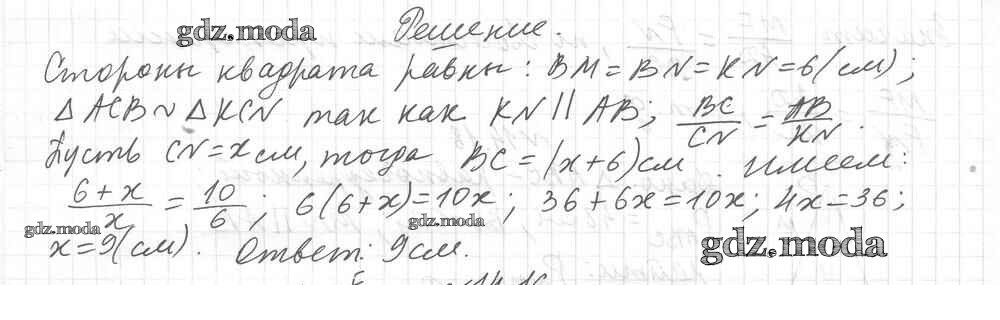 gdz.moda Решение.
Стороны квадрата равны: BM = BN = KN = 6(см);
△ ACB ~ △ KCN так как KN || AB; BC/CN = AB/KN.
Пусть CN = x см, тогда BC = (x + 6) см. имеем:
6 + x/x = 10/6; 6(6 + x) = 10x; 36 + 6x = 10x; 4x = 36;
gdz.moda gdz.moda gdz.moda
x = 9(см). Ответ: 9 см.